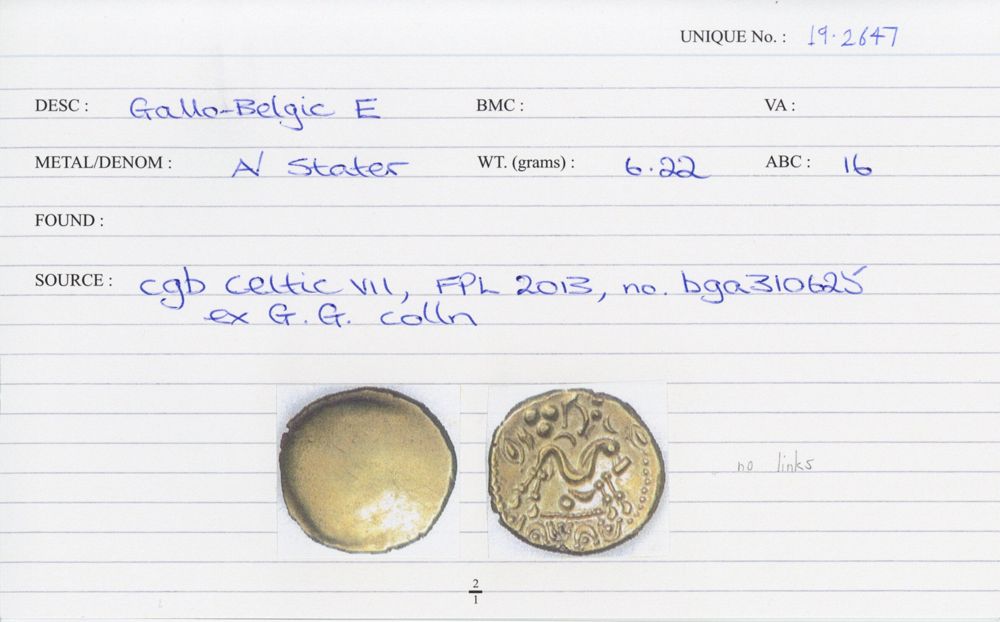 UNIQUE No. : 19.2647
DESC : Gallo-Belgic E BMC : VA :
METAL/DENOM : A/ Stater WT. (grams) : 6.22 ABC : 16
FOUND :
SOURCE : cgb Celtic VII, FPL 2013, no. bga310625
ex G.G. colln
no links
2
1